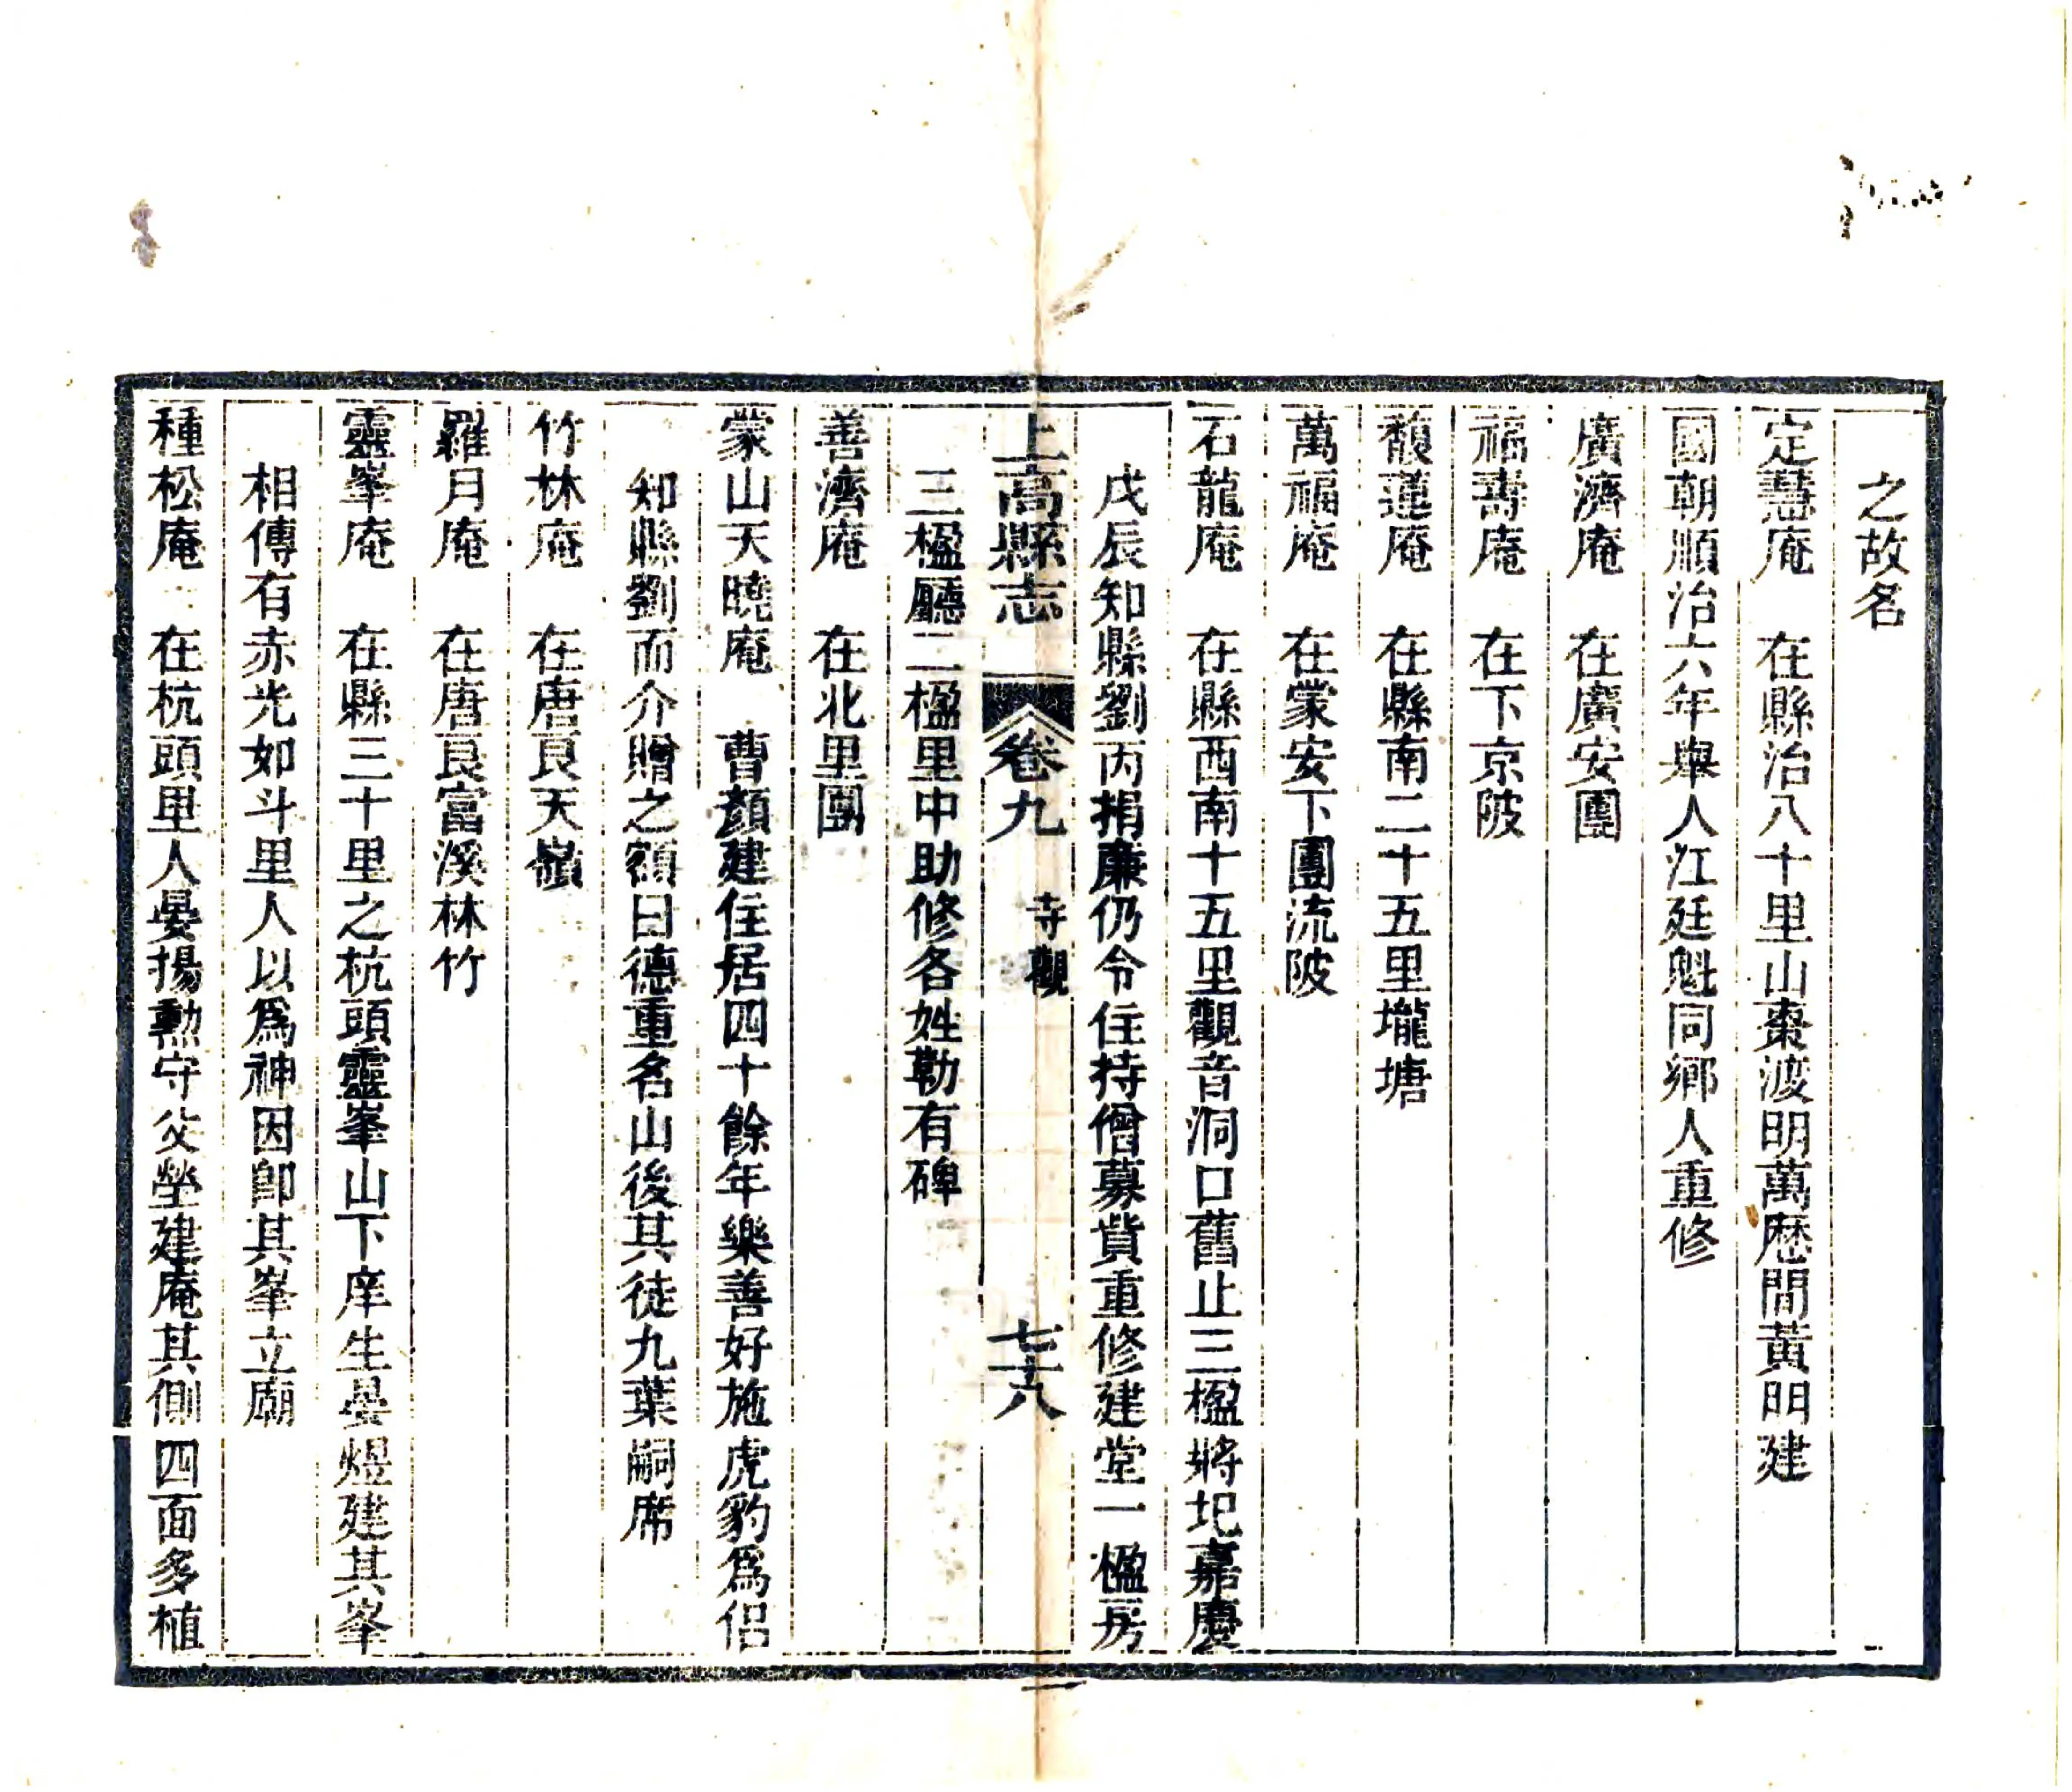 之故名
定慧庵　在縣治八十里山棗渡明萬厯間黃明建
國朝順治六年舉人江廷魁同鄉人重修
廣濟庵　在廣安團
福壽庵　在下京陂
馥蓮庵　在縣南二十五里壠塘
萬福庵　在蒙安下團流陂
石龍庵　在縣西南十五里觀音洞口舊止三楹將圮嘉慶
戊辰知縣劉丙捐廉仍令住持僧募貲重修建堂一楹房
上高縣志　卷九　寺觀　七十八
三楹廳二楹里中助修各姓勒有碑
善濟庵　在北里團
蒙山天曉庵　曹顏建住居四十餘年樂善好施虎豹爲侣
知縣劉而介贈之額曰德重名山後其徒九葉嗣席
竹林庵　在唐艮天嶺
羅月庵　在唐艮富溪林竹
靈峯庵　在縣三十里之杭頭靈峯山下庠生晏煜建其峯
相傳有赤光如斗里人以爲神因卽其峯立廟
種松庵　在杭頭里人晏揚勲守父塋建庵其側四面多植